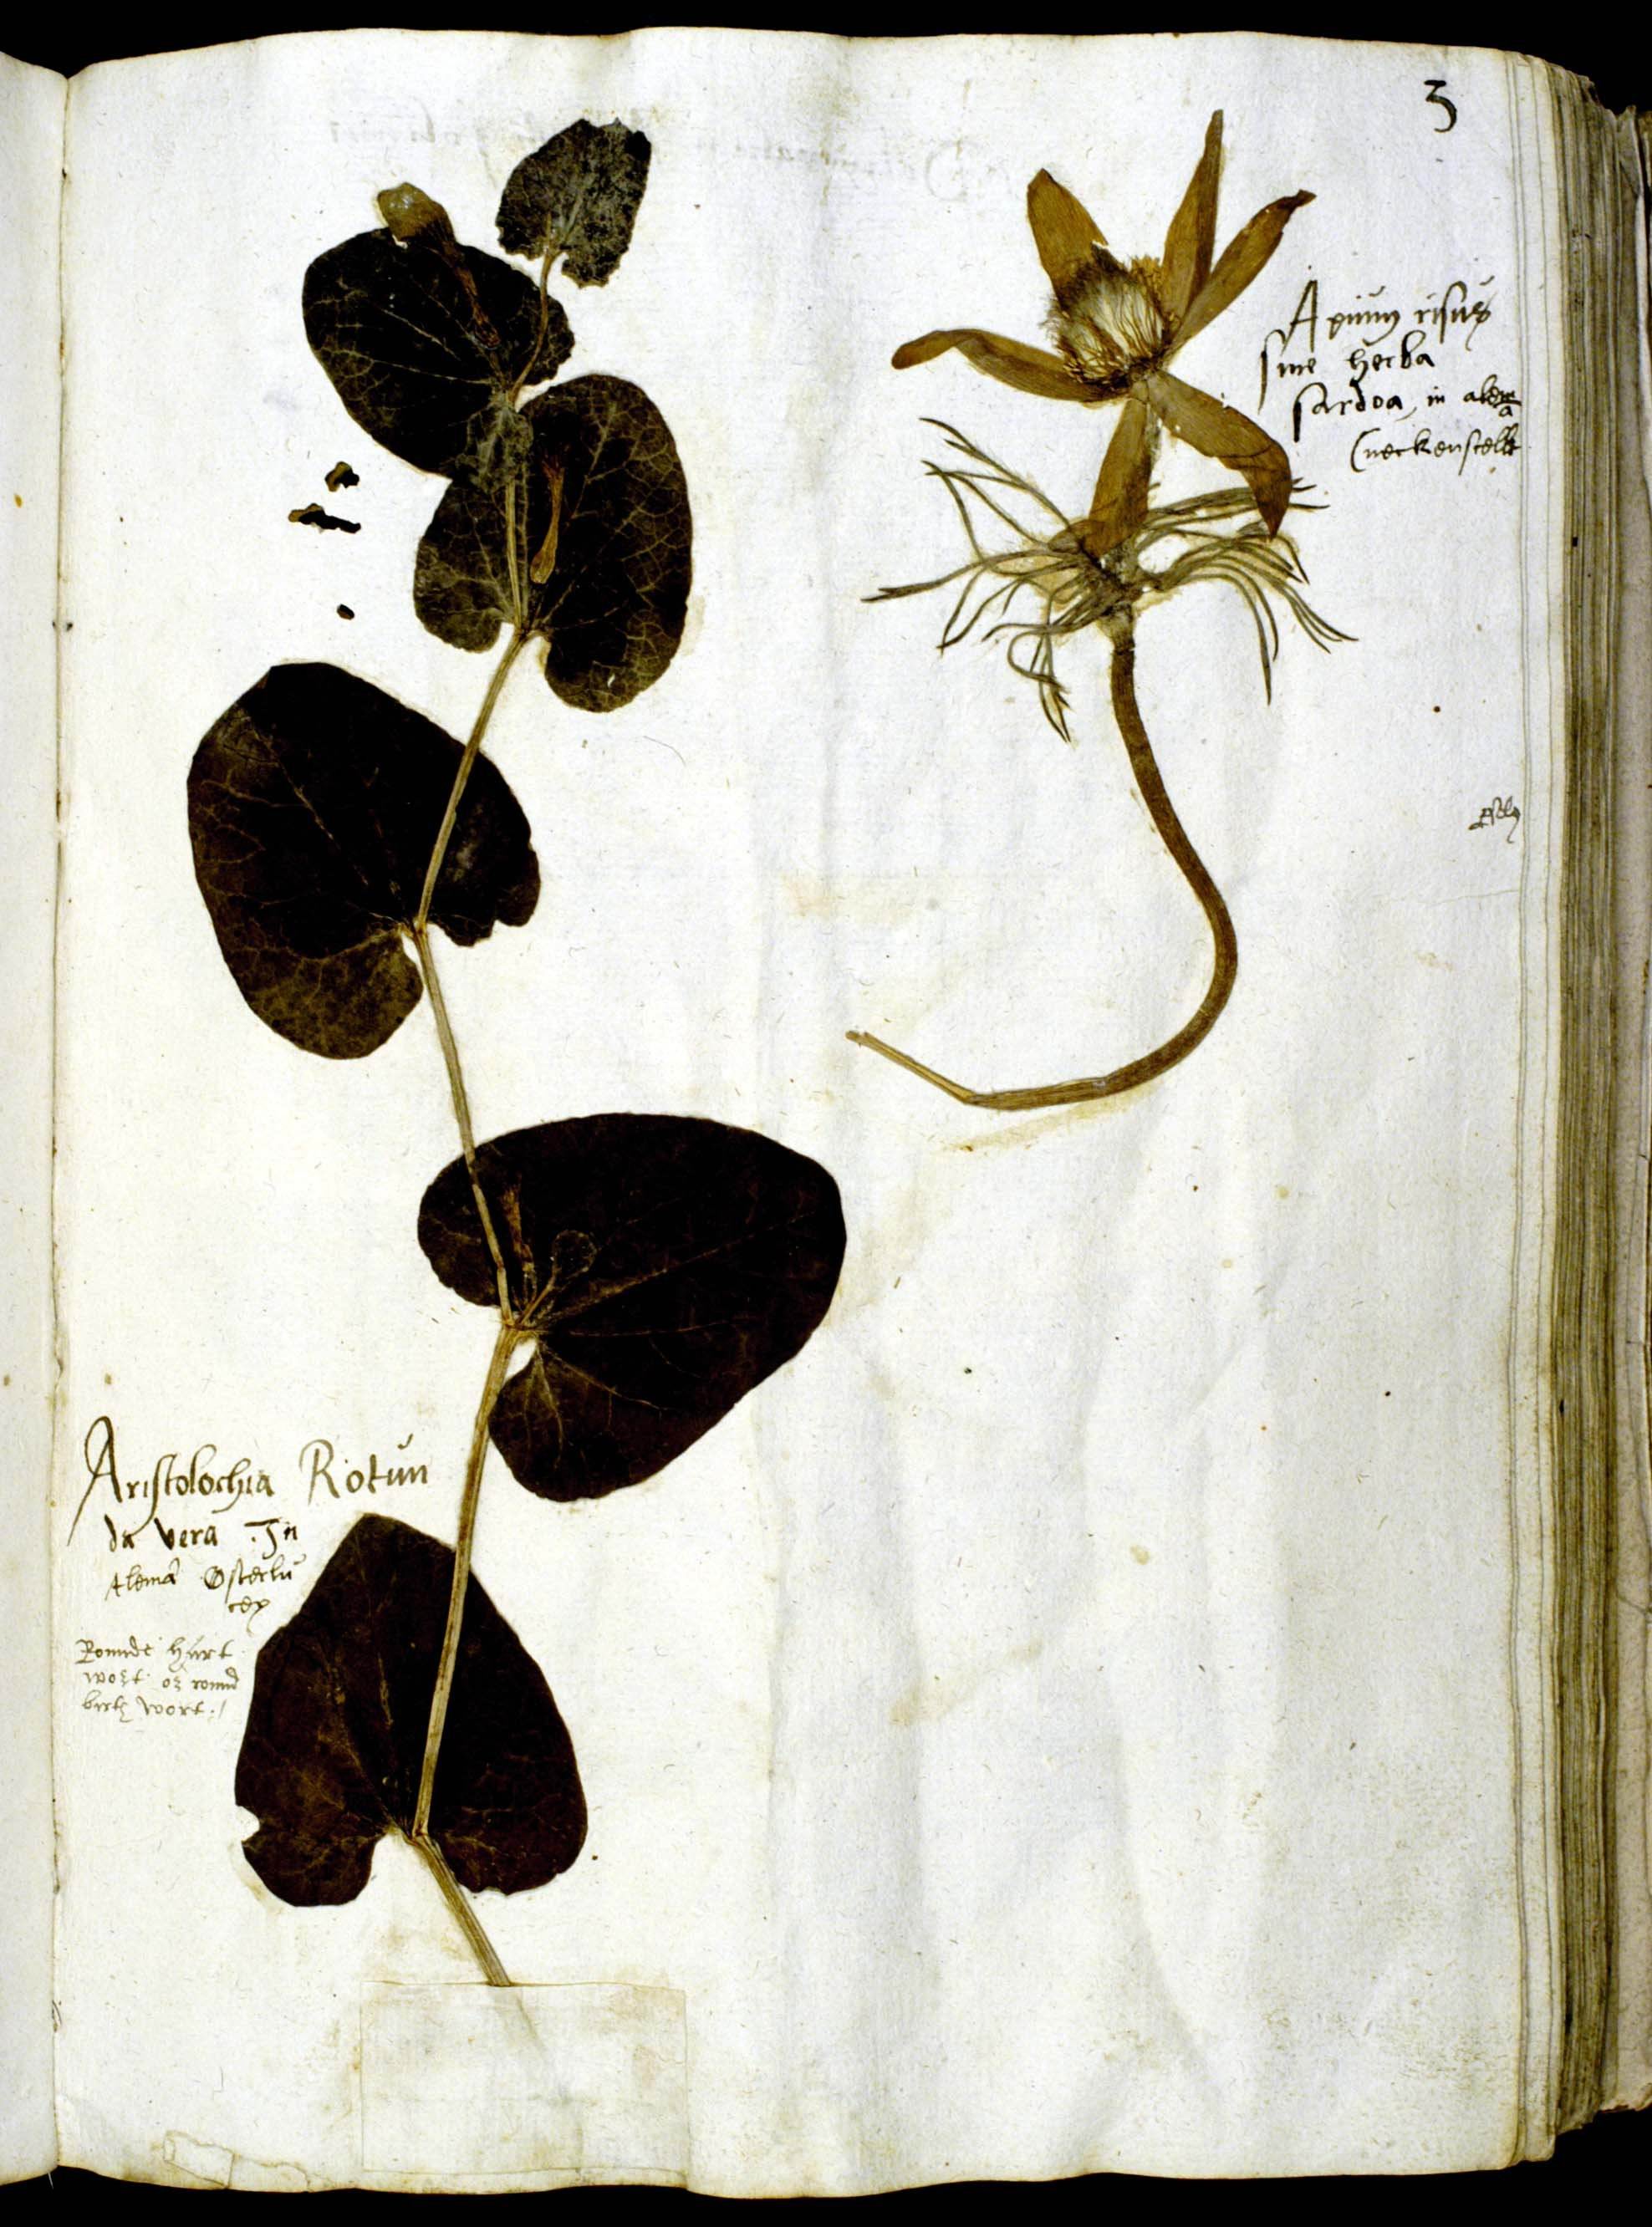 3
Apium risus
sive herba
sardoa, in alem
a
Aristolochia Rotun
da vera . Jn
Alemā Osterlu
cey
Rounde hart
wort or round
birth wort ./